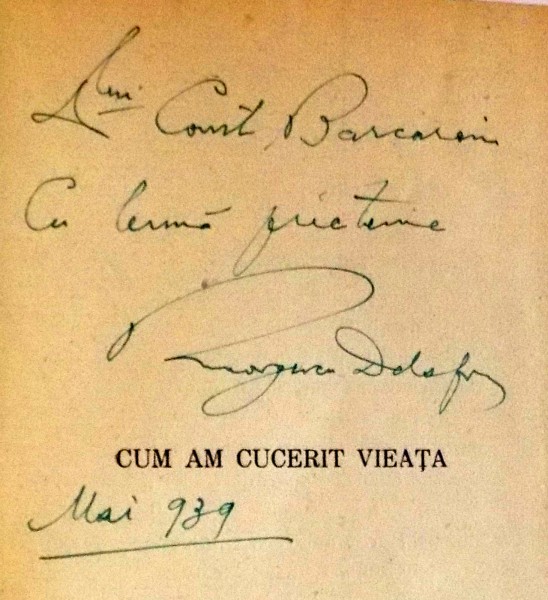 Lui Const. Barcaroiu
Cu fermă prietenie
Georgescu Delafras
CUM AM CUCERIT VIEAȚA
Mai 939